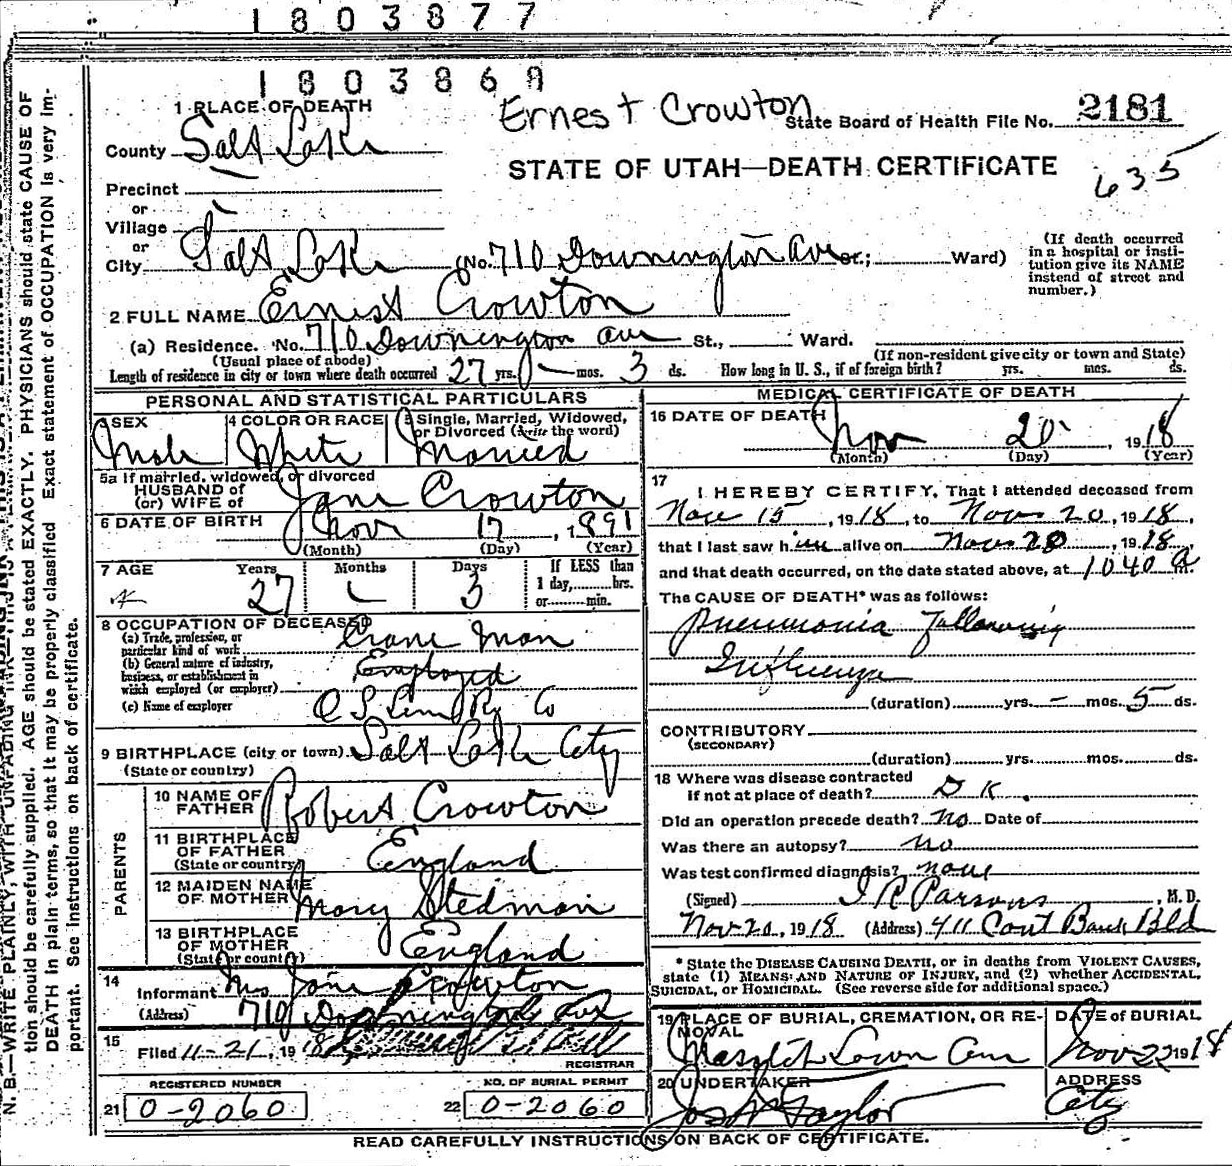 1803877
1803868
Ernest Crowton
1 PLACE OF DEATH
State Board of Health File No. 2181
County Salt Lake
STATE OF UTAH—DEATH CERTIFICATE
635
Precinct
or
Village
or
City Salt Lake (No. 710 Downington Ave St.; Ward)
(If death occurred in a hospital or insti-
tution give its NAME
instead of street and
number.)
2 FULL NAME Ernest Crowton
(a) Residence. No. 710 Downington Ave St., Ward.
(Usual place of abode) (If non-resident give city or town and State)
Length of residence in city or town where death occurred 27 yrs. — mos. 3 ds. How long in U. S., if of foreign birth? yrs. mos. ds.
PERSONAL AND STATISTICAL PARTICULARS
3 SEX Male
4 COLOR OR RACE White
5 Single, Married, Widowed,
or Divorced (write the word)
Married
5a If married, widowed, or divorced
HUSBAND of
(or) WIFE of Jane Crowton
6 DATE OF BIRTH Nov 17, 1891
(Month) (Day) (Year)
7 AGE Years Months Days If LESS than
1 day, hrs.
or min.
27 — 3
8 OCCUPATION OF DECEASED
(a) Trade, profession, or
particular kind of work Crane Man
(b) General nature of industry,
business, or establishment in
which employed (or employer) Employed
(c) Name of employer O S Line Ry Co
9 BIRTHPLACE (city or town) Salt Lake City
(State or country)
PARENTS
10 NAME OF
FATHER Robert Crowton
11 BIRTHPLACE
OF FATHER England
(State or country)
12 MAIDEN NAME
OF MOTHER Mary Stedman
13 BIRTHPLACE
OF MOTHER England
(State or country)
14
Informant Mrs Jane Crowton
(Address) 710 Downington Ave
15
Filed 11-21, 1918
REGISTRAR
REGISTERED NUMBER
21 0-2060
NO. OF BURIAL PERMIT
22 0-2060
MEDICAL CERTIFICATE OF DEATH
16 DATE OF DEATH
Nov 20, 1918
(Month) (Day) (Year)
17
I HEREBY CERTIFY, That I attended deceased from
Nov 15, 1918, to Nov 20, 1918,
that I last saw him alive on Nov 20, 1918,
and that death occurred, on the date stated above, at 1040 a m.
The CAUSE OF DEATH* was as follows:
Pneumonia Following
Influenza
(duration) yrs. — mos. 5 ds.
CONTRIBUTORY
(SECONDARY)
(duration) yrs. mos. ds.
18 Where was disease contracted
if not at place of death? D K.
Did an operation precede death? No Date of
Was there an autopsy? no
Was test confirmed diagnosis? none
(Signed) J R Parsons, M. D.
Nov 20, 1918 (Address) 411 Cont Bank Bld
* State the DISEASE CAUSING DEATH, or in deaths from VIOLENT CAUSES,
state (1) MEANS AND NATURE OF INJURY, and (2) whether ACCIDENTAL,
SUICIDAL, or HOMICIDAL. (See reverse side for additional space.)
19 PLACE OF BURIAL, CREMATION, OR RE-
MOVAL
Lawn Cem
DATE of BURIAL
Nov 22 1918
20 UNDERTAKER
Jos Wm Taylor
ADDRESS
City
READ CAREFULLY INSTRUCTIONS ON BACK OF CERTIFICATE.
tion should be carefully supplied. AGE should be stated EXACTLY. PHYSICIANS should state CAUSE OF
DEATH in plain terms, so that it may be properly classified. Exact statement of OCCUPATION is very im-
portant. See instructions on back of certificate.